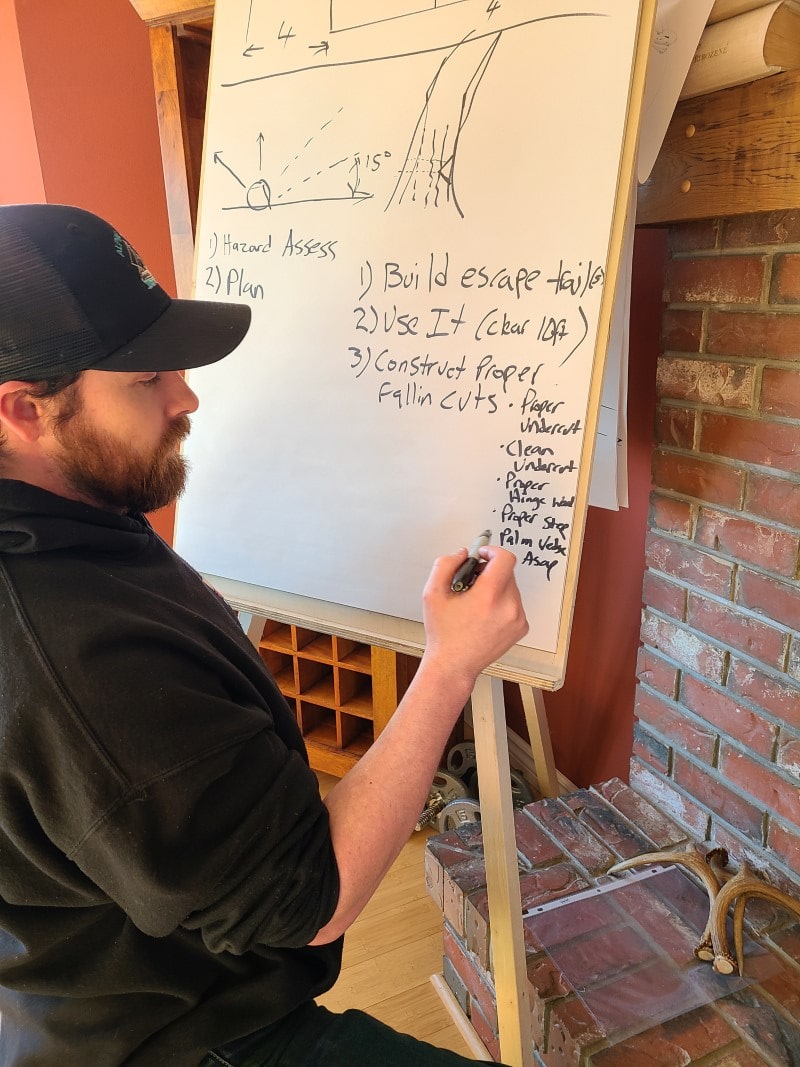 4
4
15°
1) Hazard Assess
2) Plan
1) Build escape trail(s)
2) Use It (clear 10ft)
3) Construct Proper
Fallin cuts
• Proper
undercut
• Clean
undercut
• Proper
Hinge Wood
• Proper Step
Palm
Asap